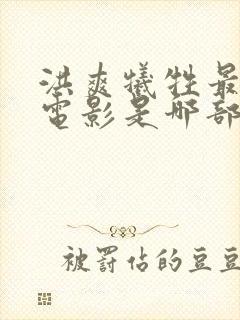 洪爽犧牲最
電影是那部
被罰佔的豆豆